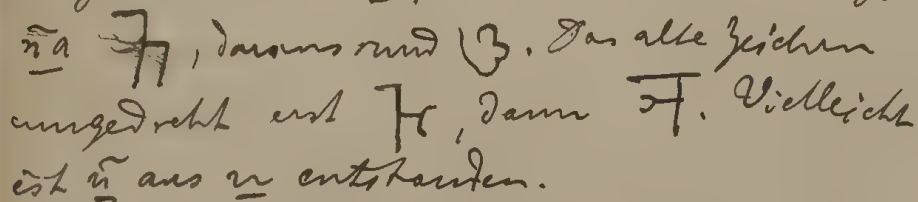 ña, daraus rund. Das alte Zeichen
umgedreht erst, dann. Vielleicht
ist ñ aus n entstanden.